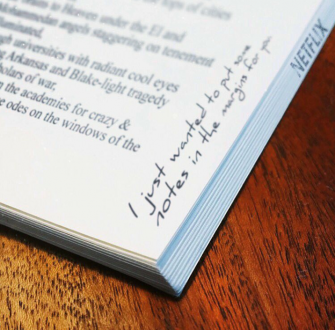 tops of cities
to Heaven under the El and
Mohammedan angels staggering on tenement
universities with radiant cool eyes
Arkansas and Blake-light tragedy
of war,
the academies for crazy &
odes on the windows of the
I just wanted to put some
notes in the margins for you
NETFLIX